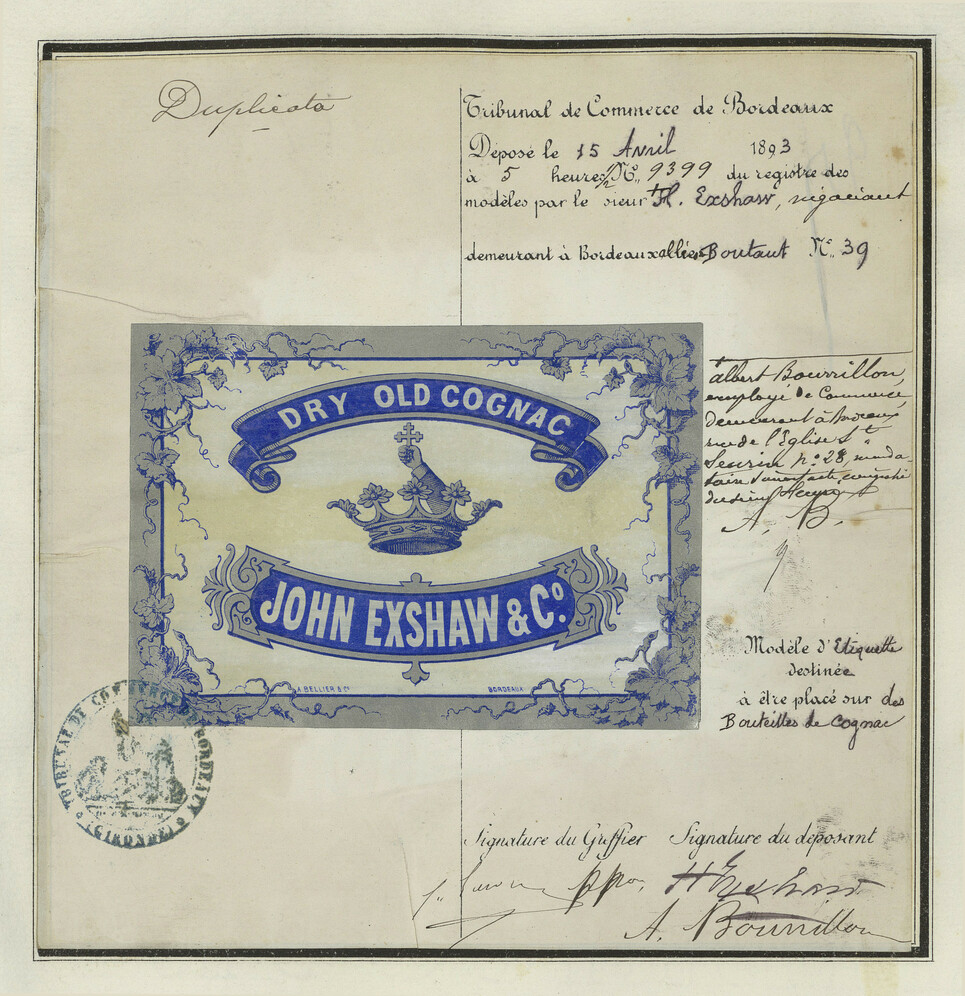 Duplicata
Tribunal de Commerce de Bordeaux
Déposé le 15 Avril 1893
à 5 heures 1/2 No. 9399 du registre des
modèles par le sieur H. Exshaw, négociant
demeurant à Bordeaux allées Boutaut No. 39
DRY OLD COGNAC
JOHN EXSHAW & Co.
A. BELLIER & Cie
BORDEAUX
albert Bourrillon,
employé de Commerce,
demeurant à Bordeaux
rue de l'Eglise St
Seurin no. 28 manda-
taire
A. B.
Modèle d'Etiquette
destinée
à être placé sur des
Bouteilles de Cognac
TRIBUNAL DE COMMERCE DE BORDEAUX
(GIRONDE)
Signature du Greffier Signature du déposant
ppon H Exshaw
A. Bourrillon